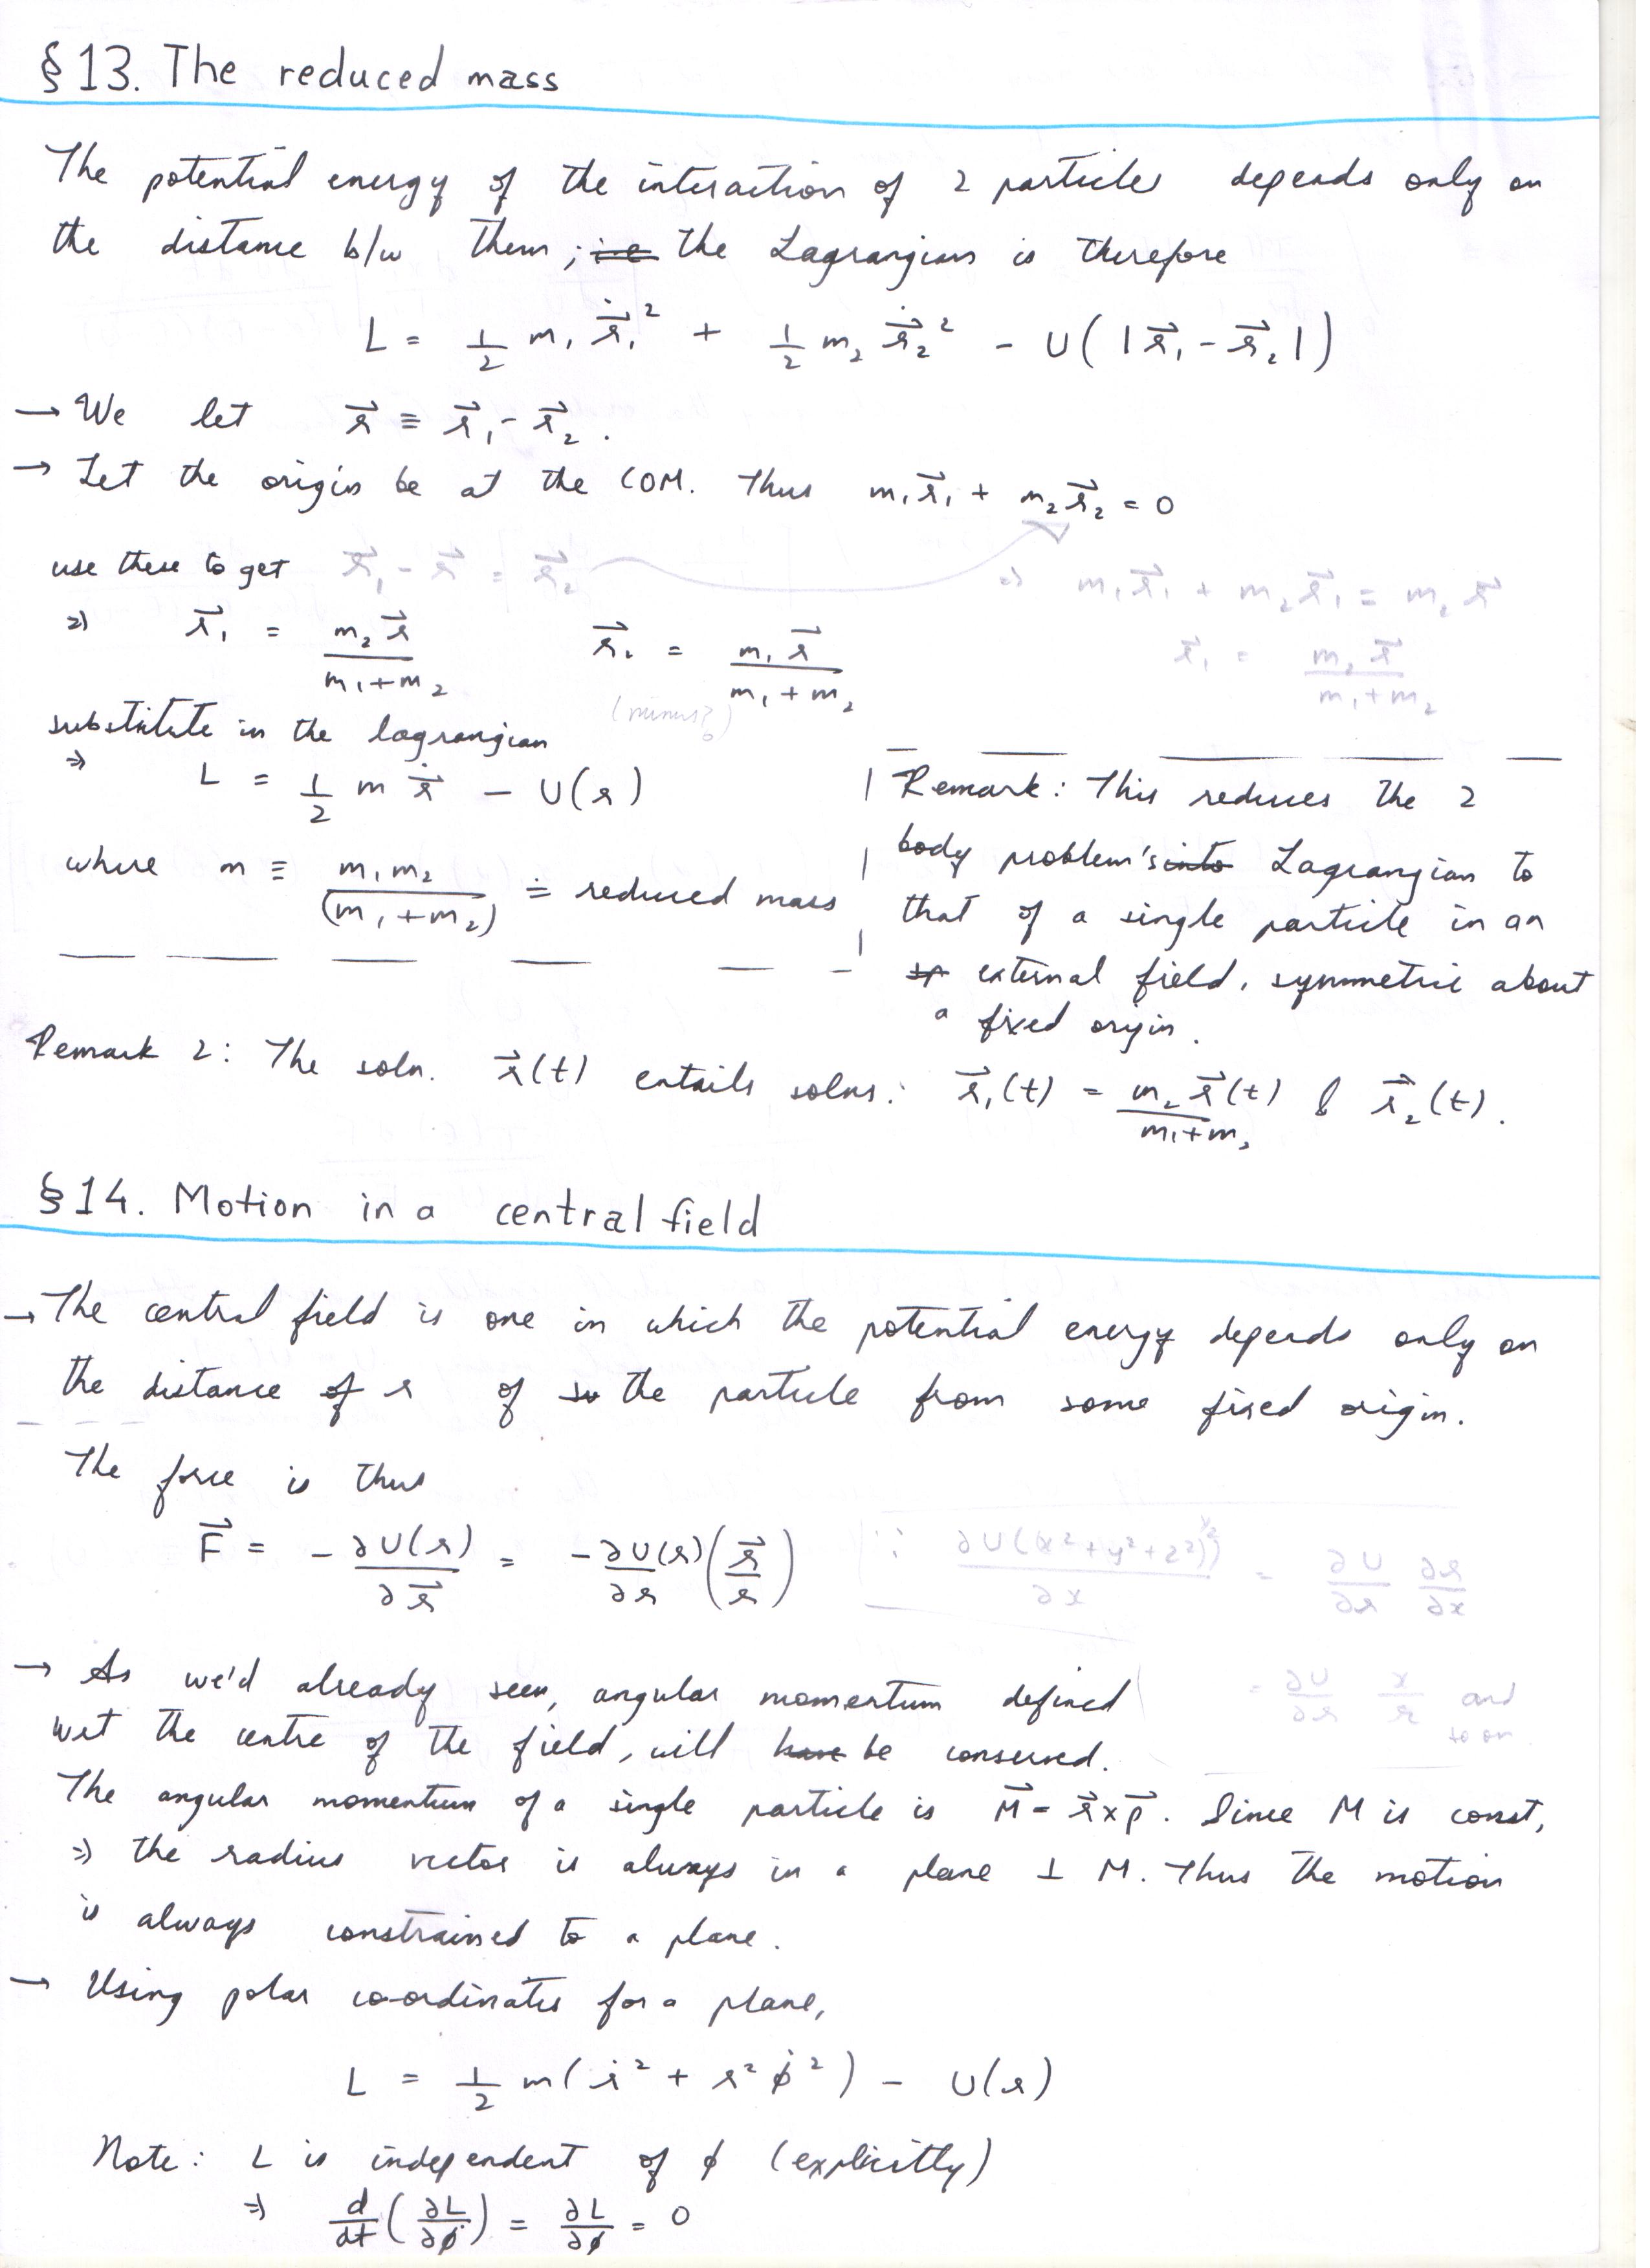 §13. The reduced mass
The potential energy of the interaction of 2 particles depends only on
the distance b/w them; i.e the Lagrangian is therefore
L = 1/2 m₁ ṙ⃗₁² + 1/2 m₂ ṙ⃗₂² - U(|r⃗₁ - r⃗₂|)
→ We let r⃗ ≡ r⃗₁ - r⃗₂.
→ Let the origin be at the COM. Thus m₁r⃗₁ + m₂r⃗₂ = 0
use these to get r⃗₁ - r⃗ = r⃗₂ ⇒ m₁r⃗₁ + m₂r⃗₁ = m₂r⃗
⇒ r⃗₁ = m₂r⃗/(m₁+m₂) r⃗₂ = m₁r⃗/(m₁+m₂) r⃗₁ = m₂r⃗/(m₁+m₂)
(minus?)
substitute in the lagrangian
⇒ L = 1/2 m ṙ⃗ - U(r)
where m ≡ m₁m₂/(m₁+m₂) ≐ reduced mass
Remark: This reduces the 2
body problem's into Lagrangian to
that of a single particle in an
sp external field, symmetric about
a fixed origin.
Remark 2: The soln. r⃗(t) entails solns: r⃗₁(t) = m₂r⃗(t)/(m₁+m₂) & r⃗₂(t).
§14. Motion in a central field
→ The central field is one in which the potential energy depends only on
the distance of r of so the particle from some fixed origin.
The force is thus
F⃗ = -∂U(r)/∂r⃗ = -∂U(r)/∂r (r⃗/r) ∵ ∂U((x²+y²+z²)^½)/∂x = ∂U/∂r ∂r/∂x
= ∂U/∂r x/r and
so on
→ As we'd already seen, angular momentum defined
wrt the centre of the field, will have be conserved.
The angular momentum of a single particle is M⃗ = r⃗×p⃗. Since M is const,
⇒ the radius vector is always in a plane ⊥ M. Thus the motion
is always constrained to a plane.
→ Using polar co-ordinates for a plane,
L = 1/2 m(ṙ² + r²φ̇²) - U(r)
Note: L is independent of φ (explicitly)
⇒ d/dt(∂L/∂φ̇) = ∂L/∂φ = 0